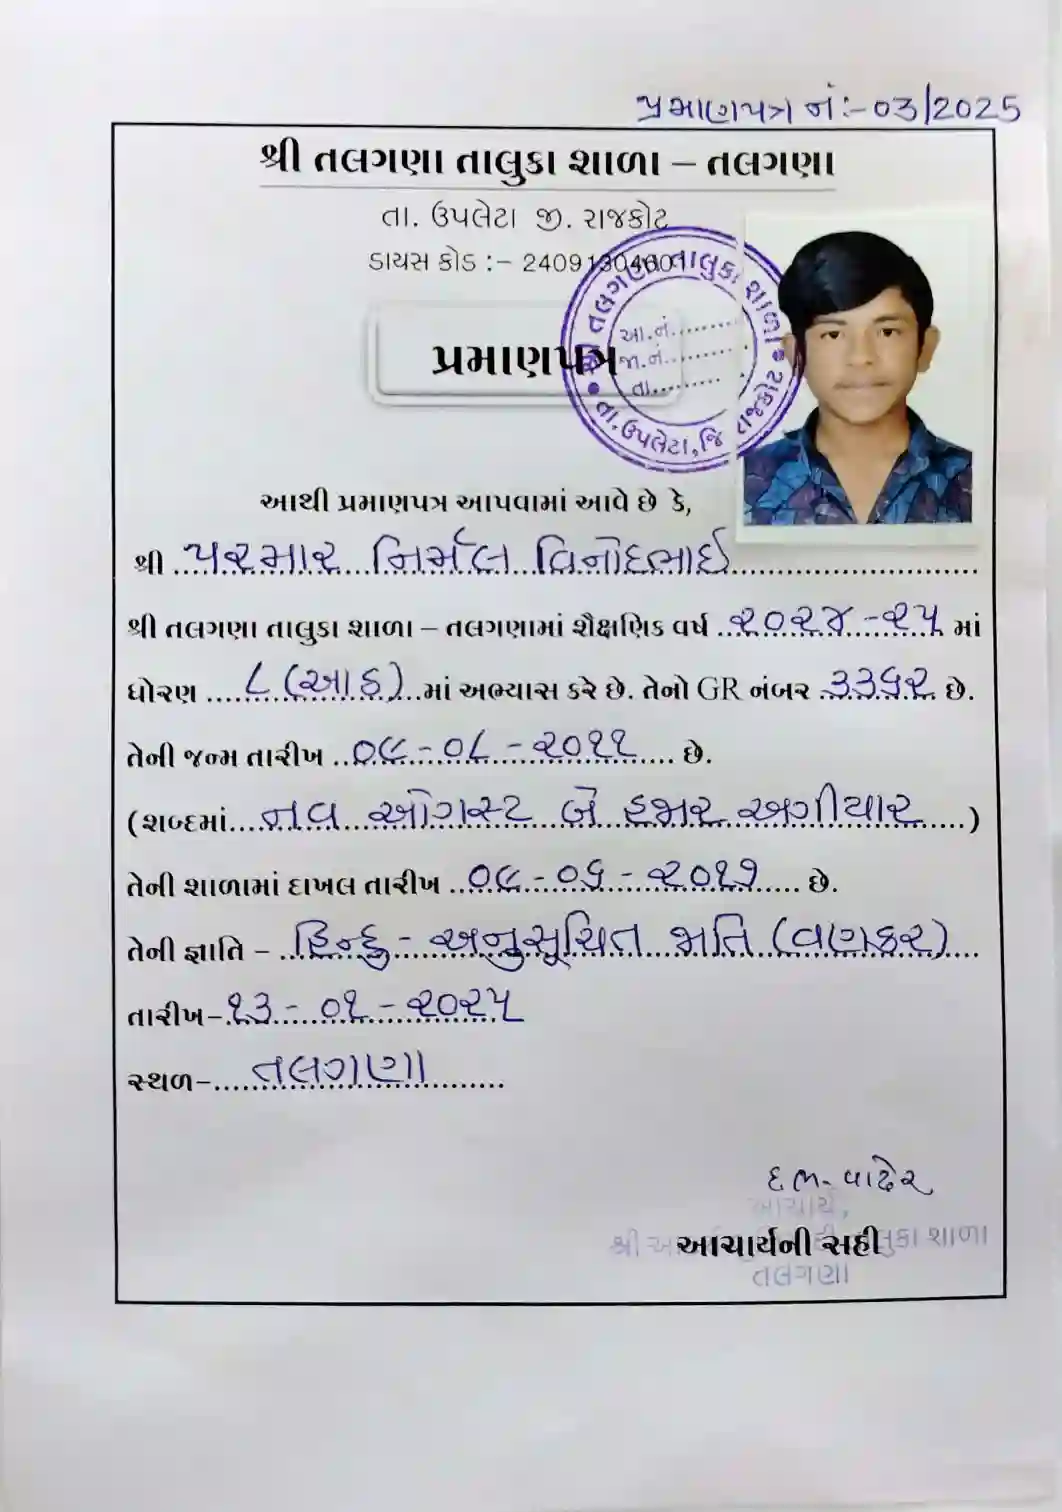 પ્રમાણપત્ર નં:- 03/2025
શ્રી તલગણા તાલુકા શાળા – તલગણા
તા. ઉપલેટા જી. રાજકોટ
ડાયસ કોડ :- 24091304601
શ્રી તલગણા તાલુકા શાળા
આ.નં.........
જા.નં.........
તા.........
તા.ઉપલેટા, જિ રાજકોટ
પ્રમાણપત્ર
આથી પ્રમાણપત્ર આપવામાં આવે છે કે,
શ્રી પરમાર નિર્મલ વિનોદભાઈ
શ્રી તલગણા તાલુકા શાળા – તલગણામાં શૈક્ષણિક વર્ષ ૨૦૨૪-૨૫ માં
ધોરણ ૮ (આઠ) માં અભ્યાસ કરે છે. તેનો GR નંબર ૩૩૬૨ છે.
તેની જન્મ તારીખ ૦૯-૦૮-૨૦૧૧ છે.
(શબ્દમાં નવ ઓગસ્ટ બે હજાર અગીયાર)
તેની શાળામાં દાખલ તારીખ ૦૯-૦૬-૨૦૧૭ છે.
તેની જ્ઞાતિ – હિન્દુ - અનુસૂચિત જાતિ (વણકર)
તારીખ– ૧૩-૦૧-૨૦૨૫
સ્થળ– તલગણા
આચાર્ય,
આચાર્યની સહી
શ્રી તાલુકા શાળા
તલગણા